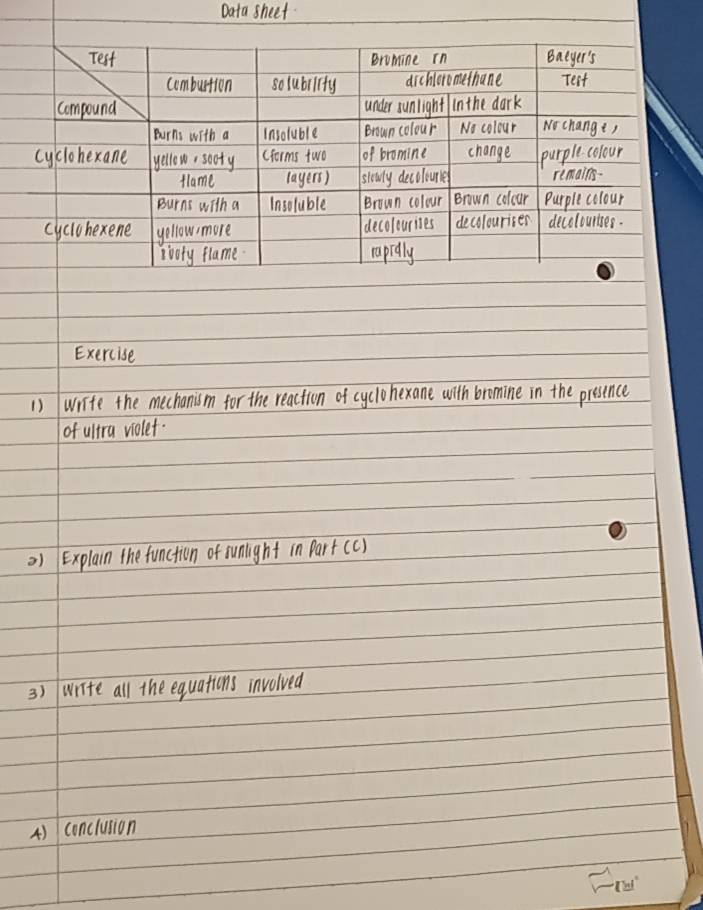 Data sheet
Test Bromine in Baeyer's
Combustion solubility dichloromethane Test
Compound under sunlight in the dark
Burns with a Insoluble Brown colour No colour No change,
Cyclohexane yellow, sooty (forms two of bromine change purple colour
flame layers) slowly decolouries remains.
Burns with a Insoluble Brown colour Brown colour Purple colour
Cyclohexene yellow, more decolourises decolourises decolourises.
sooty flame. rapidly
Exercise
1) Write the mechanism for the reaction of cyclohexane with bromine in the presence
of ultra violet.
2) Explain the function of sunlight in Part (C)
3) Write all the equations involved
4) Conclusion